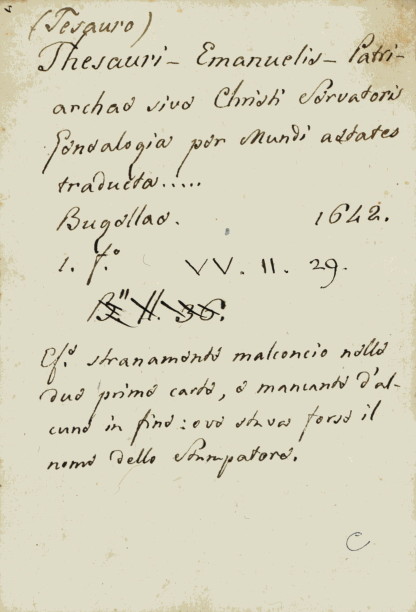 (Tesauro)
Thesauri - Emanuelis - Patri-
archae sive Christi Servatoris
Genealogia per Mundi aetates
traducta.....
Bugellae. 1642.
1. f.º VV. II. 29.
B." II. 36.
Es.º stranamente malconcio nelle
due prime carte, e mancante d'al-
cune in fine: ove stava forse il
nome dello Stampatore.
C